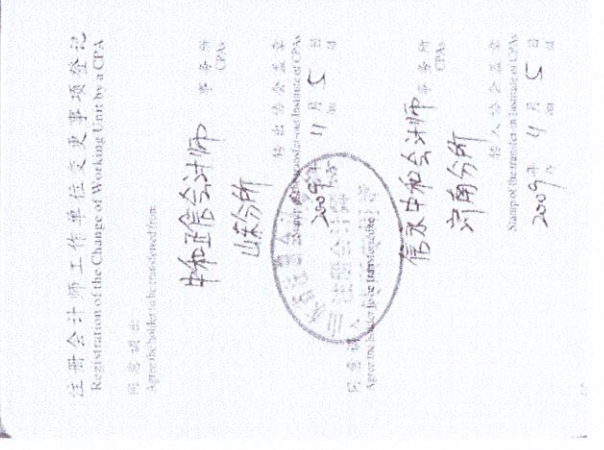 注册会计师工作单位变更事项登记
Registration of the Change of Working Unit by a CPA
同意调出
Agree the holder to be transferred from
中和正信会计师 事务所
CPAs
山东分所
转出协会盖章
Stamp of the transfer-out Institute of CPAs
2009年 11月 5日
同意调入
Agree the holder to be transferred to
信永中和会计师 事务所
CPAs
河南分所
转入协会盖章
Stamp of the transfer-in Institute of CPAs
2009年 11月 5日